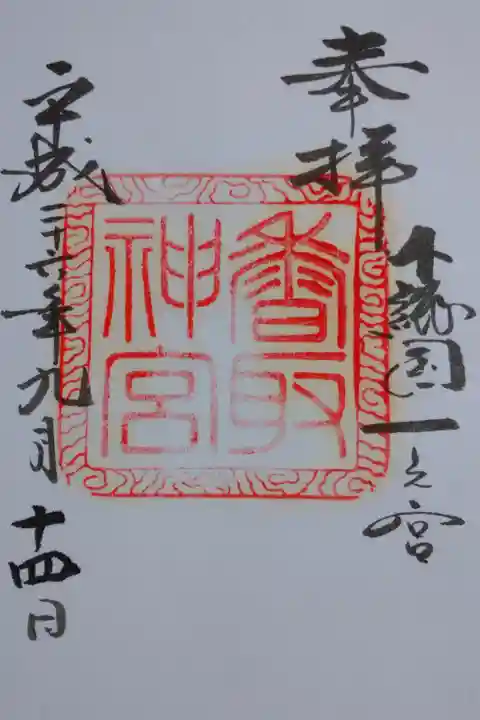 奉拝
下総国一之宮
香取
神宮
平成二十六年九月十四日